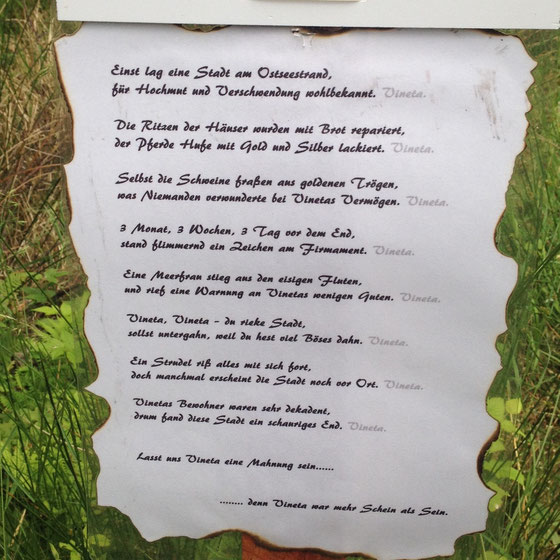 Einst lag eine Stadt am Ostseestrand,
für Hochmut und Verschwendung wohlbekannt. Vineta.
Die Ritzen der Häuser wurden mit Brot repariert,
der Pferde Hufe mit Gold und Silber lackiert. Vineta.
Selbst die Schweine fraßen aus goldenen Trögen,
was Niemanden verwunderte bei Vinetas Vermögen. Vineta.
3 Monat, 3 Wochen, 3 Tag vor dem End,
stand flimmernd ein Zeichen am Firmament. Vineta.
Eine Meerfrau stieg aus den eisigen Fluten,
und rief eine Warnung an Vinetas wenigen Guten. Vineta.
Vineta, Vineta - du rieke Stadt,
sollst untergahn, weil du hest viel Böses dahn. Vineta.
Ein Strudel riß alles mit sich fort,
doch manchmal erscheint die Stadt noch vor Ort. Vineta.
Vinetas Bewohner waren sehr dekadent,
drum fand diese Stadt ein schauriges End. Vineta.
Lasst uns Vineta eine Mahnung sein......
........ denn Vineta war mehr Schein als Sein.